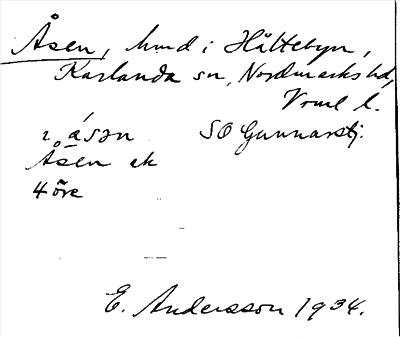 Åsen, hmd i Håltebyn,
Karlanda sn, Nordmarks hd,
Vrml l.
ɿ åsən SO Gunnarsbj.
Åsen ek
4 öre
E. Andersson 1934.